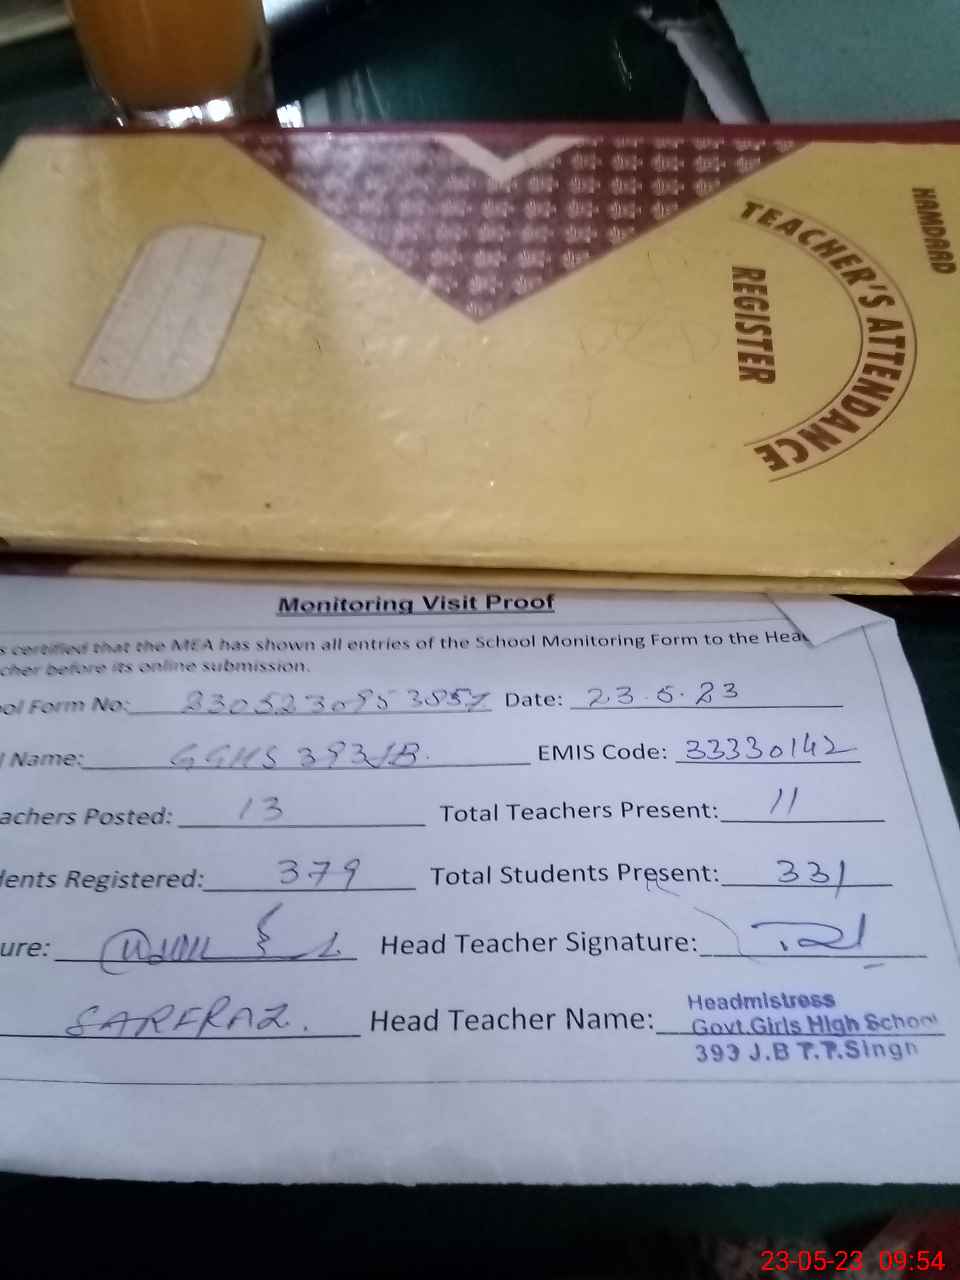 HAMDARD
TEACHER'S ATTENDANCE
REGISTER
Monitoring Visit Proof
s certified that the MEA has shown all entries of the School Monitoring Form to the Head
cher before its online submission.
ool Form No: Date: 23.5.23
l Name: GGHS 393JB. EMIS Code: 33330142
achers Posted: 13 Total Teachers Present: 11
dents Registered: 379 Total Students Present: 331
ure: Head Teacher Signature:
SARFRAZ. Head Teacher Name: Headmistress
Govt.Girls High School
393 J.B T.T.Singh
23-05-23 09:54